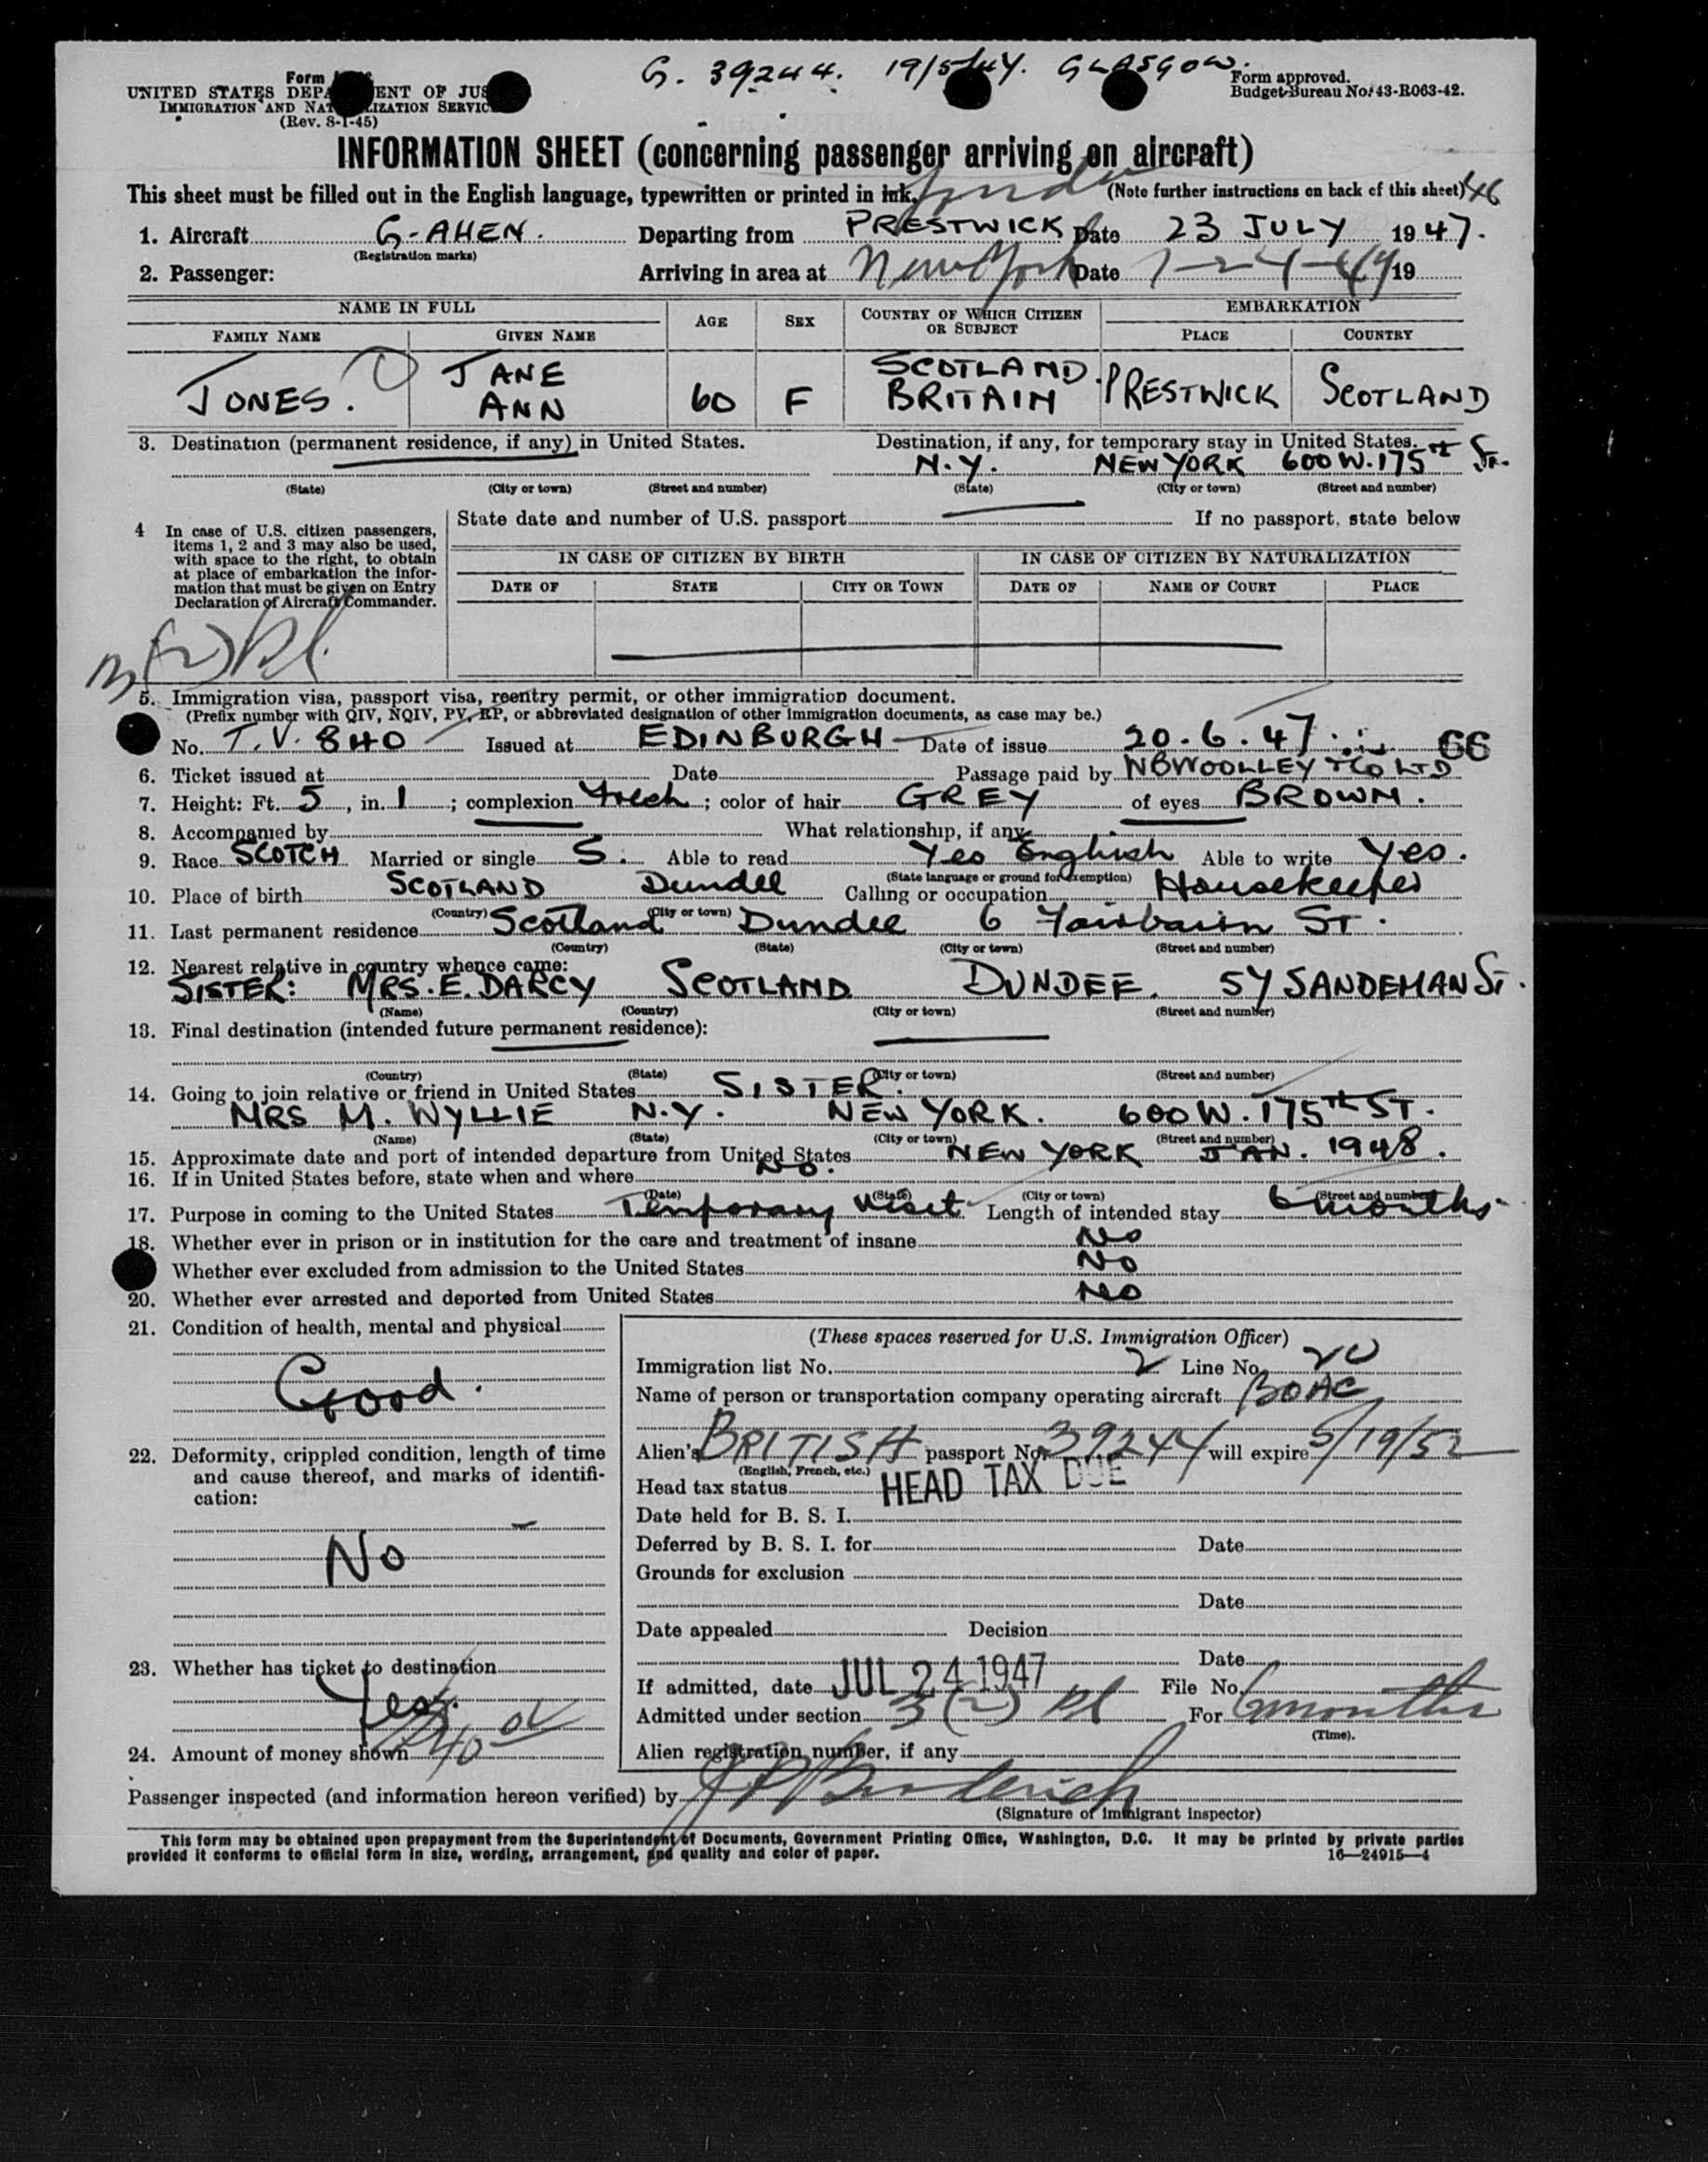 G. 39244. 19/5/47. GLASGOW.
Form
UNITED STATES DEPA ENT OF JUS
IMMIGRATION AND NAT LIZATION SERVIC
(Rev. 8-1-45)
Form approved.
Budget Bureau No. 43-R063-42.
INFORMATION SHEET (concerning passenger arriving on aircraft)
This sheet must be filled out in the English language, typewritten or printed in ink. (Note further instructions on back of this sheet)
1. Aircraft G-AHEN. Departing from PRESTWICK Date 23 JULY 1947.
(Registration marks)
2. Passenger: Arriving in area at New York Date 7-24-47 19
NAME IN FULL AGE SEX COUNTRY OF WHICH CITIZEN OR SUBJECT EMBARKATION
FAMILY NAME GIVEN NAME PLACE COUNTRY
JONES. JANE ANN 60 F SCOTLAND. BRITAIN PRESTWICK SCOTLAND
3. Destination (permanent residence, if any) in United States. Destination, if any, for temporary stay in United States.
N.Y. NEW YORK 600 W. 175th St.
(State) (City or town) (Street and number) (State) (City or town) (Street and number)
4 In case of U.S. citizen passengers, items 1, 2 and 3 may also be used, with space to the right, to obtain at place of embarkation the information that must be given on Entry Declaration of Aircraft Commander.
State date and number of U.S. passport If no passport, state below
IN CASE OF CITIZEN BY BIRTH IN CASE OF CITIZEN BY NATURALIZATION
DATE OF STATE CITY OR TOWN DATE OF NAME OF COURT PLACE
5. Immigration visa, passport visa, reentry permit, or other immigration document.
(Prefix number with QIV, NQIV, PV, RP, or abbreviated designation of other immigration documents, as case may be.)
No. T.V. 840 Issued at EDINBURGH Date of issue 20.6.47. 66
6. Ticket issued at Date Passage paid by NBWOOLLEY & CO LTD
7. Height: Ft. 5, in. 1; complexion fresh; color of hair GREY of eyes BROWN.
8. Accompanied by What relationship, if any
9. Race SCOTCH Married or single S. Able to read Yes English Able to write Yes.
(State language or ground for exemption)
10. Place of birth SCOTLAND Dundee Calling or occupation Housekeeper
(Country) (City or town)
11. Last permanent residence Scotland Dundee 6 Fairbairn St.
(Country) (State) (City or town) (Street and number)
12. Nearest relative in country whence came:
SISTER: MRS. E. DARCY SCOTLAND DUNDEE. 57 SANDEMAN St.
(Name) (Country) (City or town) (Street and number)
13. Final destination (intended future permanent residence):
(Country) (State) (City or town) (Street and number)
14. Going to join relative or friend in United States SISTER.
MRS M. WYLLIE N.Y. NEW YORK. 600 W. 175th ST.
(Name) (State) (City or town) (Street and number)
15. Approximate date and port of intended departure from United States NEW YORK JAN. 1948.
16. If in United States before, state when and where No.
(Date) (State) (City or town) (Street and number)
17. Purpose in coming to the United States Temporary Visit Length of intended stay 6 months.
18. Whether ever in prison or in institution for the care and treatment of insane No
Whether ever excluded from admission to the United States No
20. Whether ever arrested and deported from United States No
21. Condition of health, mental and physical
Good.
22. Deformity, crippled condition, length of time and cause thereof, and marks of identification:
No
23. Whether has ticket to destination
Yes.
24. Amount of money shown
(These spaces reserved for U.S. Immigration Officer)
Immigration list No. 2 Line No. 20
Name of person or transportation company operating aircraft BOAC
Alien's BRITISH passport No. 39244 will expire 5/19/52
(English, French, etc.)
Head tax status HEAD TAX DUE
Date held for B. S. I.
Deferred by B. S. I. for Date
Grounds for exclusion
Date
Date appealed Decision
Date
If admitted, date JUL 24 1947 File No.
Admitted under section 3 (2) For 6 months
(Time).
Alien registration number, if any
Passenger inspected (and information hereon verified) by
(Signature of immigrant inspector)
This form may be obtained upon prepayment from the Superintendent of Documents, Government Printing Office, Washington, D.C. It may be printed by private parties
provided it conforms to official form in size, wording, arrangement, and quality and color of paper. 16—24915-4